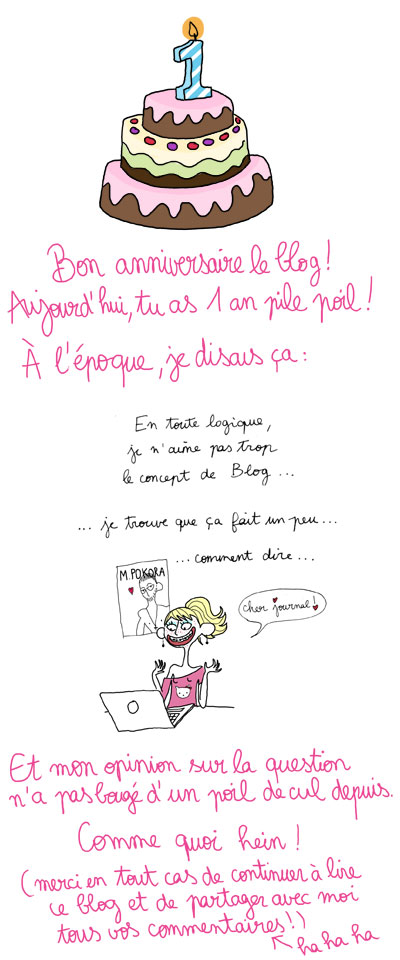 1
Bon anniversaire le blog!
Aujourd'hui, tu as 1 an pile poil!
À l'époque, je disais ça :
En toute logique,
je n'aime pas trop
le concept de Blog ...
... je trouve que ça fait un peu...
... comment dire...
M. POKORA
cher journal!
Et mon opinion sur la question
n'a pas bougé d'un poil de cul depuis.
Comme quoi hein !
(merci en tout cas de continuer à lire
ce blog et de partager avec moi
tous vos commentaires!)
ha ha ha